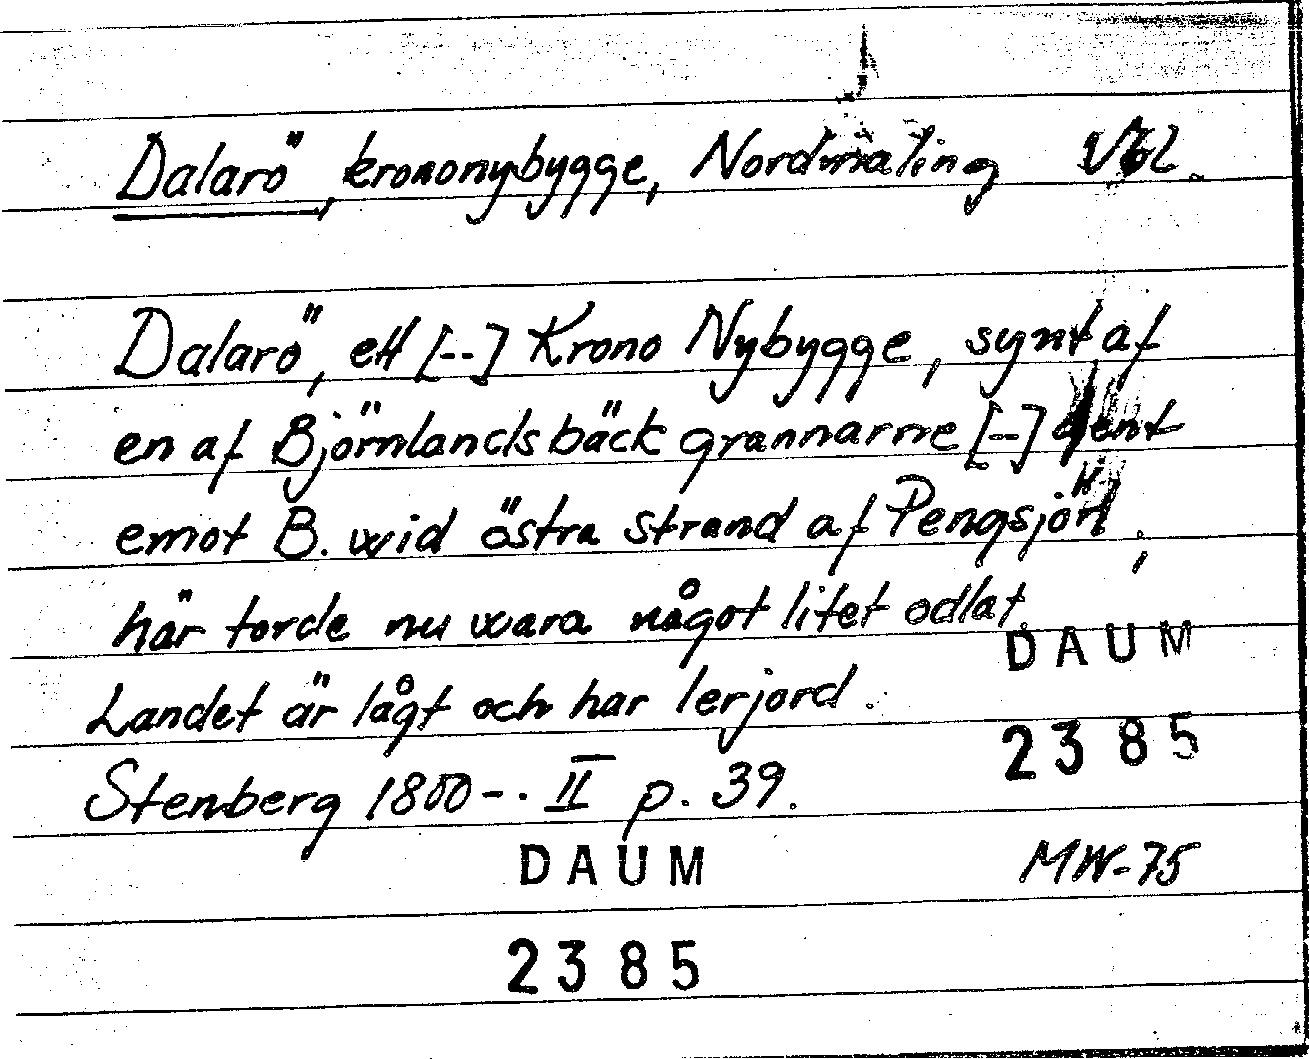 Dalarö, krononybygge, Nordmaling Vbl.
Dalarö, ett [--] Krono Nybygge, synt af
en af Björnlandsbäck grannarne [--] gent
emot B. wid östra strand af Pengsjön,
här torde nu wara något litet odlat.
Landet är lågt och har lerjord.
Stenberg 1800-. II p. 39.
DAUM
2385
MW-75
DAUM
2385